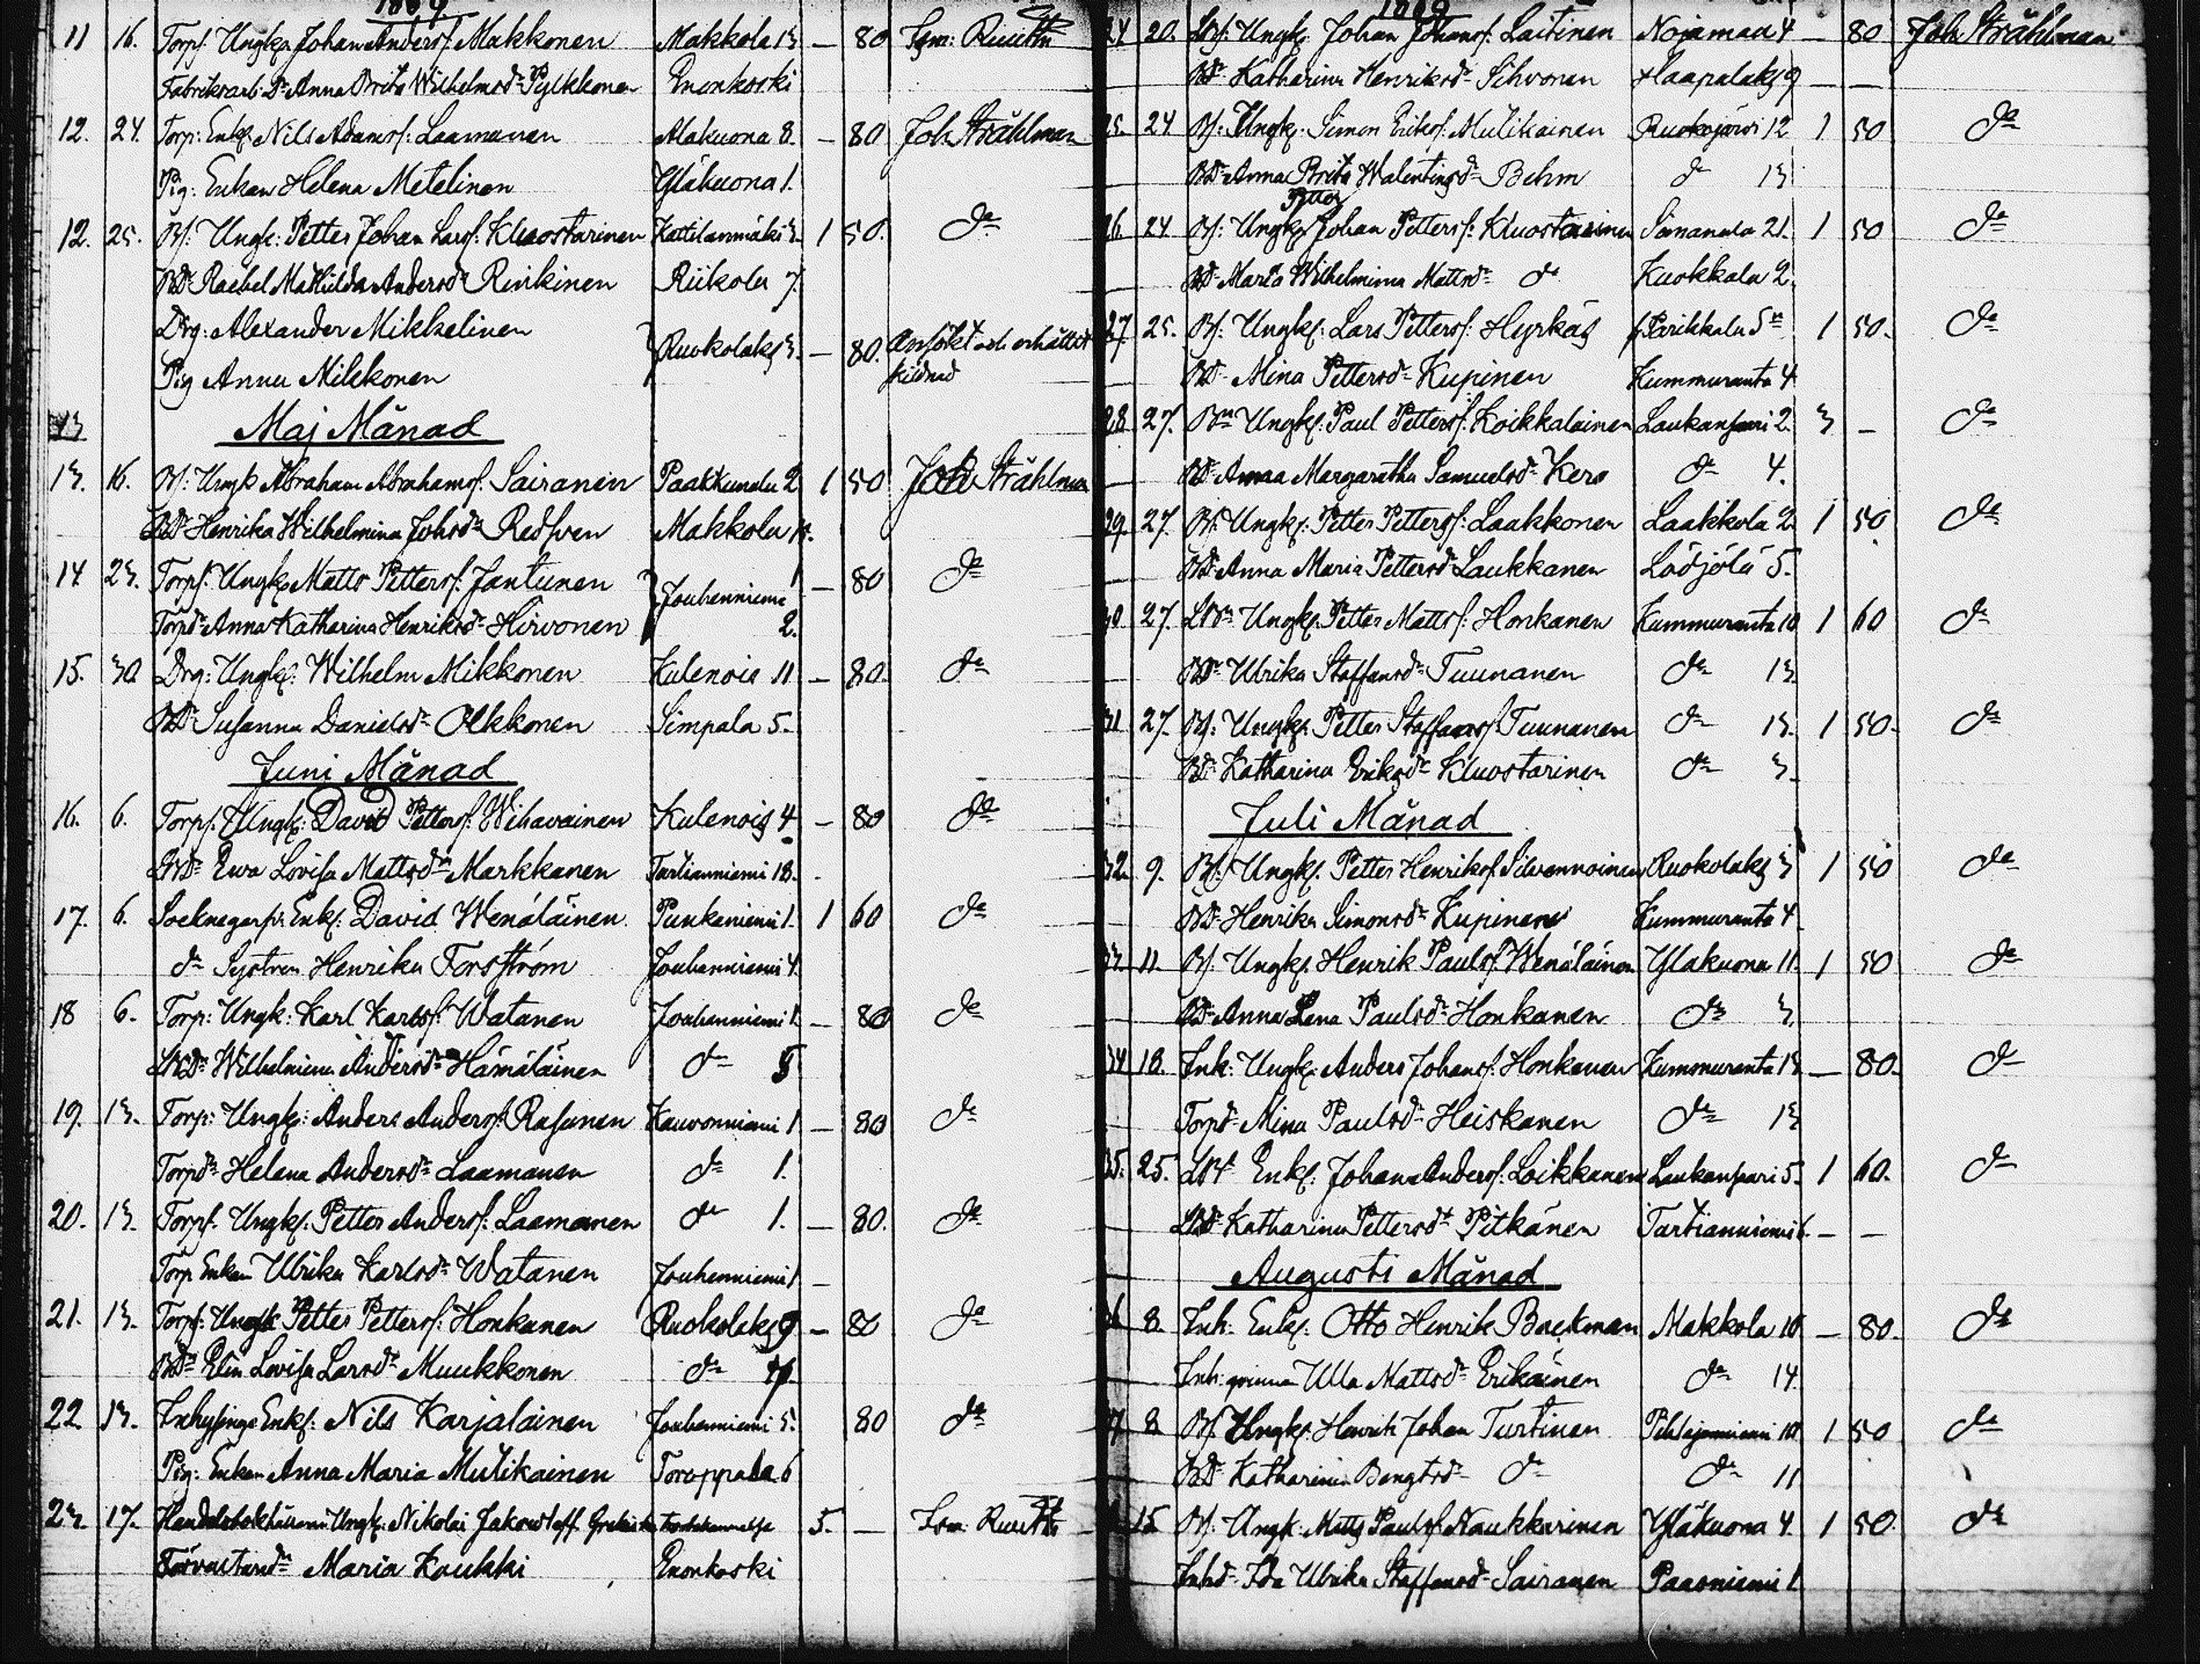 1869
11 16. Torps. Ungk. Johan Anderss. Makkonen Makkola 13 — 80 Sgm: Ruuth
Fabriksarb: Dr Anna Brita Wilhelmsdr Pylkkonen Enonkoski
12. 24. Torp: Enkl. Nils Adamss: Laamanen Alakuona 8. — 80 Joh Stråhlman
Pig: Enkan Helena Metelinen Yläkuona 1.
12. 25. Bs: Ungk: Petter Johan Larss: Kluostarinen Kattilanmäki 3. 1 50. do
BDr Rachel Mathilda Andersdr Rinkinen Riikola 7
Drg: Alexander Mikkelinen Ruokolaks 3. — 80. Ansökt och erhållit
Pig Anna Mikkonen skildnad
13 Maj Månad
13. 16. Bs: Ungk Abraham Abrahamss. Sairanen Paakkunala 2 1 50 Joh Stråhlman
BDr Henrika Wilhelmina Johsdr Redsven Makkola 14.
14 23. Torps. Ungk. Matts Petterss. Jantunen Jouhenniemi 1 — 80 do
Torpdr Anna Katharina Henriksdr Hirvonen 2.
15. 30 Drg: Ungk. Wilhelm Mikkonen Kulenois 11 — 80. do
BDr Susanna Danielsdr Olkkonen Simpala 5.
Juni Månad
16. 6. Torps. Ungk: David Petterss. Wihavainen Kulenois 4 — 80 do
BDr Ewa Lovisa Mattsdr Markkanen Tartianniemi 18.
17. 6. Socknegarfv: Enkl. David Wenäläinen. Punkaniemi 1. 1 60 do
do Systren Henrika Forsström Jouhenniemi 4.
18 6. Torp: Ungk: Karl Karlss: Watanen Jouhenniemi 1. — 80 do
BDr Wilhelmina Andersdr Hämäläinen do 5
19. 13. Torp: Ungk: Anders Anderss. Rasanen Kauvonniemi 1 — 80 do
Torpdr Helena Andersdr Laamanen do 1.
20. 13. Torps. Ungk. Petter Anderss. Laamanen do 1. — 80. do
Torp Enkan Ulrika Karlsdr Watanen Jouhenniemi 1 —
21. 13. Torps. Ungk Petter Petterss. Honkanen Ruokolaks 9 — 80 do
BDr Elin Lovisa Larsdr Muukkonen do
22 13. Inhysinge Enkl: Nils Karjalainen Jouhenniemi 5. 80 do
Pig: Enkan Anna Maria Mulikainen Toroppala 6
23 17. Handelsbokhållaren Ungk. Nikolai Jakowleff 5. — Ruuth
Förvaltaredr Maria Kaukki Enonkoski
1869
24 20. Ungk. Johan Johanss. Laitinen Nojamaa 4 — 80 Joh Stråhlman
BDr Katharina Henriksdr Sihvonen Haapalaks 9 — —
25. 24 Bs: Ungk. Simon Erikss. Mulikainen Ruokojärvi 12 1 50 do
BDr Anna Brita Walentinsdr Behm do 13
Petter
26 24 Bs: Ungk. Johan Petterss: Kluostarinen Simanala 21. 1 50 do
BDr Maria Wilhelmina Mattsdr do Kuokkala 2.
27 25. Bs: Ungk: Lars Petterss: Hyrkäs Parikkala 5 1 50. do
BDr Mina Pettersdr Kupinen Kummuranta 4
28 27. Bn Ungk: Paul Petterss: Loikkalainen Laukansaari 2. 3 — do
BDr Annaa Margaretha Samuelsdr Kero do 4.
29. 27. Bs: Ungk. Petter Petterss: Laakkonen Laakkola 2 1 50 do
BDr Anna Maria Pettersdr Laukkanen Lödjölä 5.
30. 27. LBn Ungk. Petter Mattss: Honkanen Kummuranta 10 1 60 do
BDr Ulrika Staffansdr Tuunanen do 13
31 27. Bs: Ungk. Petter Staffanss Tuunanen do 13. 1 50. do
BDr Katharina Eriksdr Kluostarinen do 3.
Juli Månad
32. 9. Bs: Ungk. Petter Henrikss. Silvennoinen Ruokolaks 3 1 50 do
BDr Henrika Simonsdr Kupinen Kummuranta 4.
33. 11. Bs. Ungk. Henrik Paulss. Wenäläinen Yläkuona 11. 1 50 do
BDr Anna Lena Paulsdr Honkanen do 3.
34 18. Inh: Ungk: Anders Johanss: Honkanen Kummuranta 13 — 80. do
Torpdr Mina Paulsdr Heiskanen do 13
35. 25. Enkl: Johan Anderss. Loikkanen Laukansaari 5. 1 60. do
BDr Katharina Pettersdr Pitkänen Tartianniemi 6 — —
Augusti Månad
36 8. Inh: Enkl: Otto Henrik Backman Makkola 10 — 80. do
Inh: qvinna Ulla Mattsdr Erikäinen do 14.
37 8 Bs. Ungk. Henrik Johan Turtinen Pihlajaniemi 10 1 50 do
BDr Katharina Bengtsdr do do 11
15 Bs: Ungk. Matts Paulss. Naukkarinen Yläkuona 4. 1 50 do
Inhdr Ida Ulrika Staffansdr Sairanen Paasniemi 1.